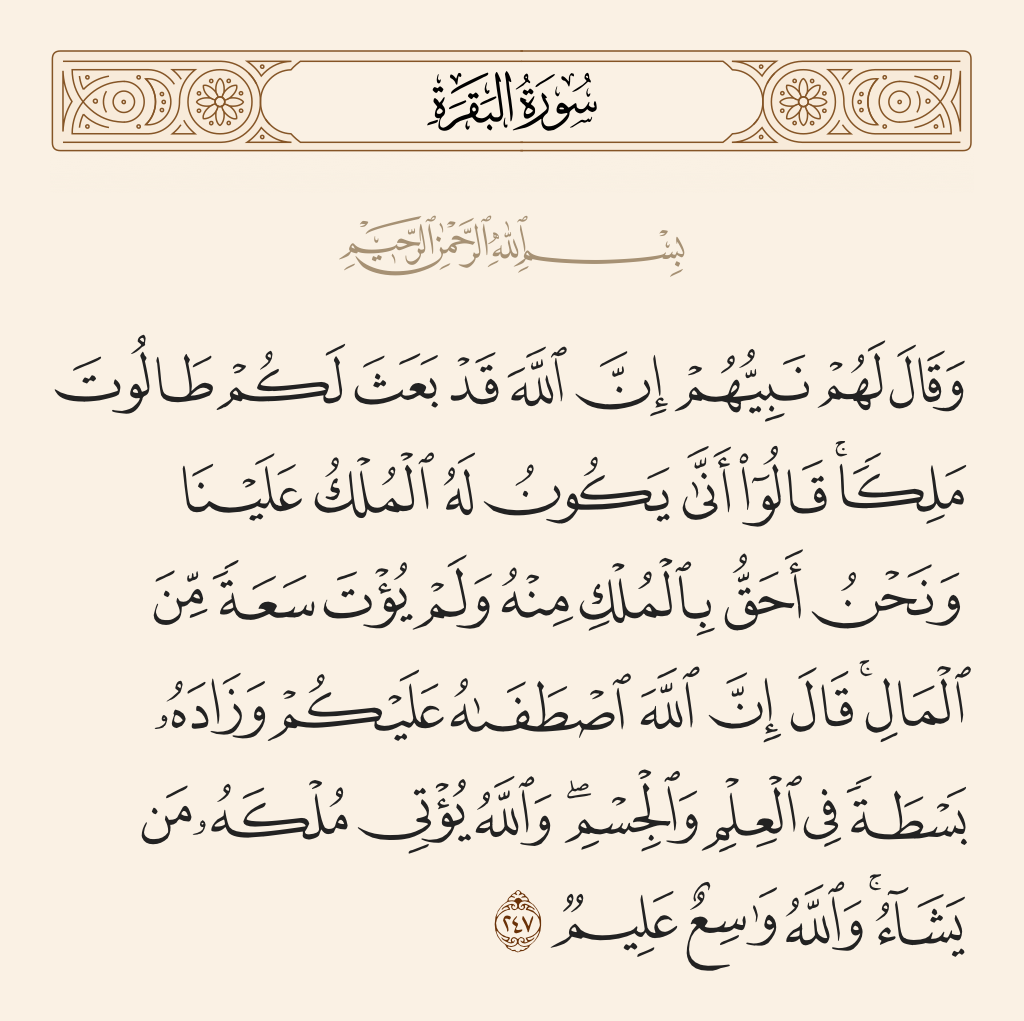 سُورَةُ البَقَرَةِ
بِسْمِ ٱللَّهِ ٱلرَّحْمَٰنِ ٱلرَّحِيمِ
وَقَالَ لَهُمْ نَبِيُّهُمْ إِنَّ ٱللَّهَ قَدْ بَعَثَ لَكُمْ طَالُوتَ
مَلِكًاۚ قَالُوٓا۟ أَنَّىٰ يَكُونُ لَهُ ٱلْمُلْكُ عَلَيْنَا
وَنَحْنُ أَحَقُّ بِٱلْمُلْكِ مِنْهُ وَلَمْ يُؤْتَ سَعَةً مِّنَ
ٱلْمَالِۚ قَالَ إِنَّ ٱللَّهَ ٱصْطَفَىٰهُ عَلَيْكُمْ وَزَادَهُۥ
بَسْطَةً فِى ٱلْعِلْمِ وَٱلْجِسْمِۖ وَٱللَّهُ يُؤْتِى مُلْكَهُۥ مَن
يَشَآءُۚ وَٱللَّهُ وَٰسِعٌ عَلِيمٌ ٢٤٧